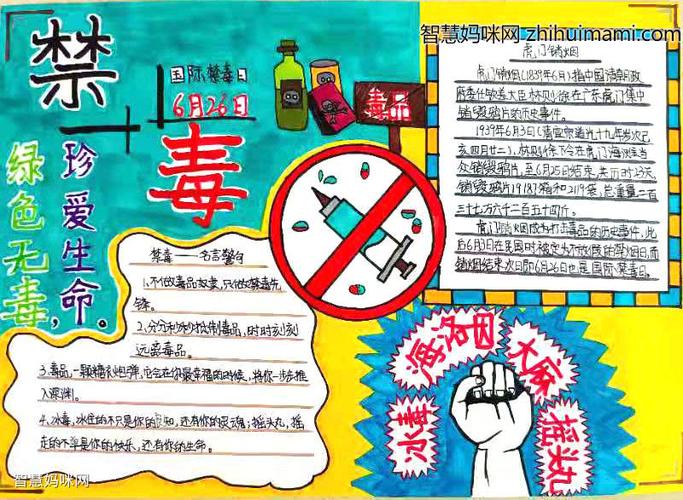 智慧妈咪网 zhihuimami.com
禁毒
国际禁毒日
6月26日
毒品
珍爱生命。
绿色无毒,
虎门销烟
虎门销烟(1839年6月)指中国清朝政
府委任钦差大臣林则徐在广东虎门集中
销毁鸦片的历史事件。
1939年6月3日(清宣宗道光十九年岁次己
亥四月廿二),林则徐下令在虎门海滩当
众销毁鸦片,至6月25日结束,共历时23天,
销毁鸦片19187箱和2119袋,总重量二百
三十七万六千二百五十四斤。
虎门销烟成为打击毒品的历史事件,此
后6月3日在民国时被定为不放假的禁烟日,而
销烟结束次日即6月26日也是国际禁毒日。
禁毒——名言警句
1、不做毒品奴隶,只做禁毒先
锋。
2、分分秒秒抵制毒品,时时刻刻
远离毒品。
3、毒品,一颗糖衣炮弹,它会在你最幸福的时候,将你一步步推
入深渊。
4、冰毒,冰住的不只是你的良知,还有你的灵魂;摇头丸,摇
走的不单是你的快乐,还有你的生命。
海洛因
大麻
冰毒
摇头丸
智慧妈咪网